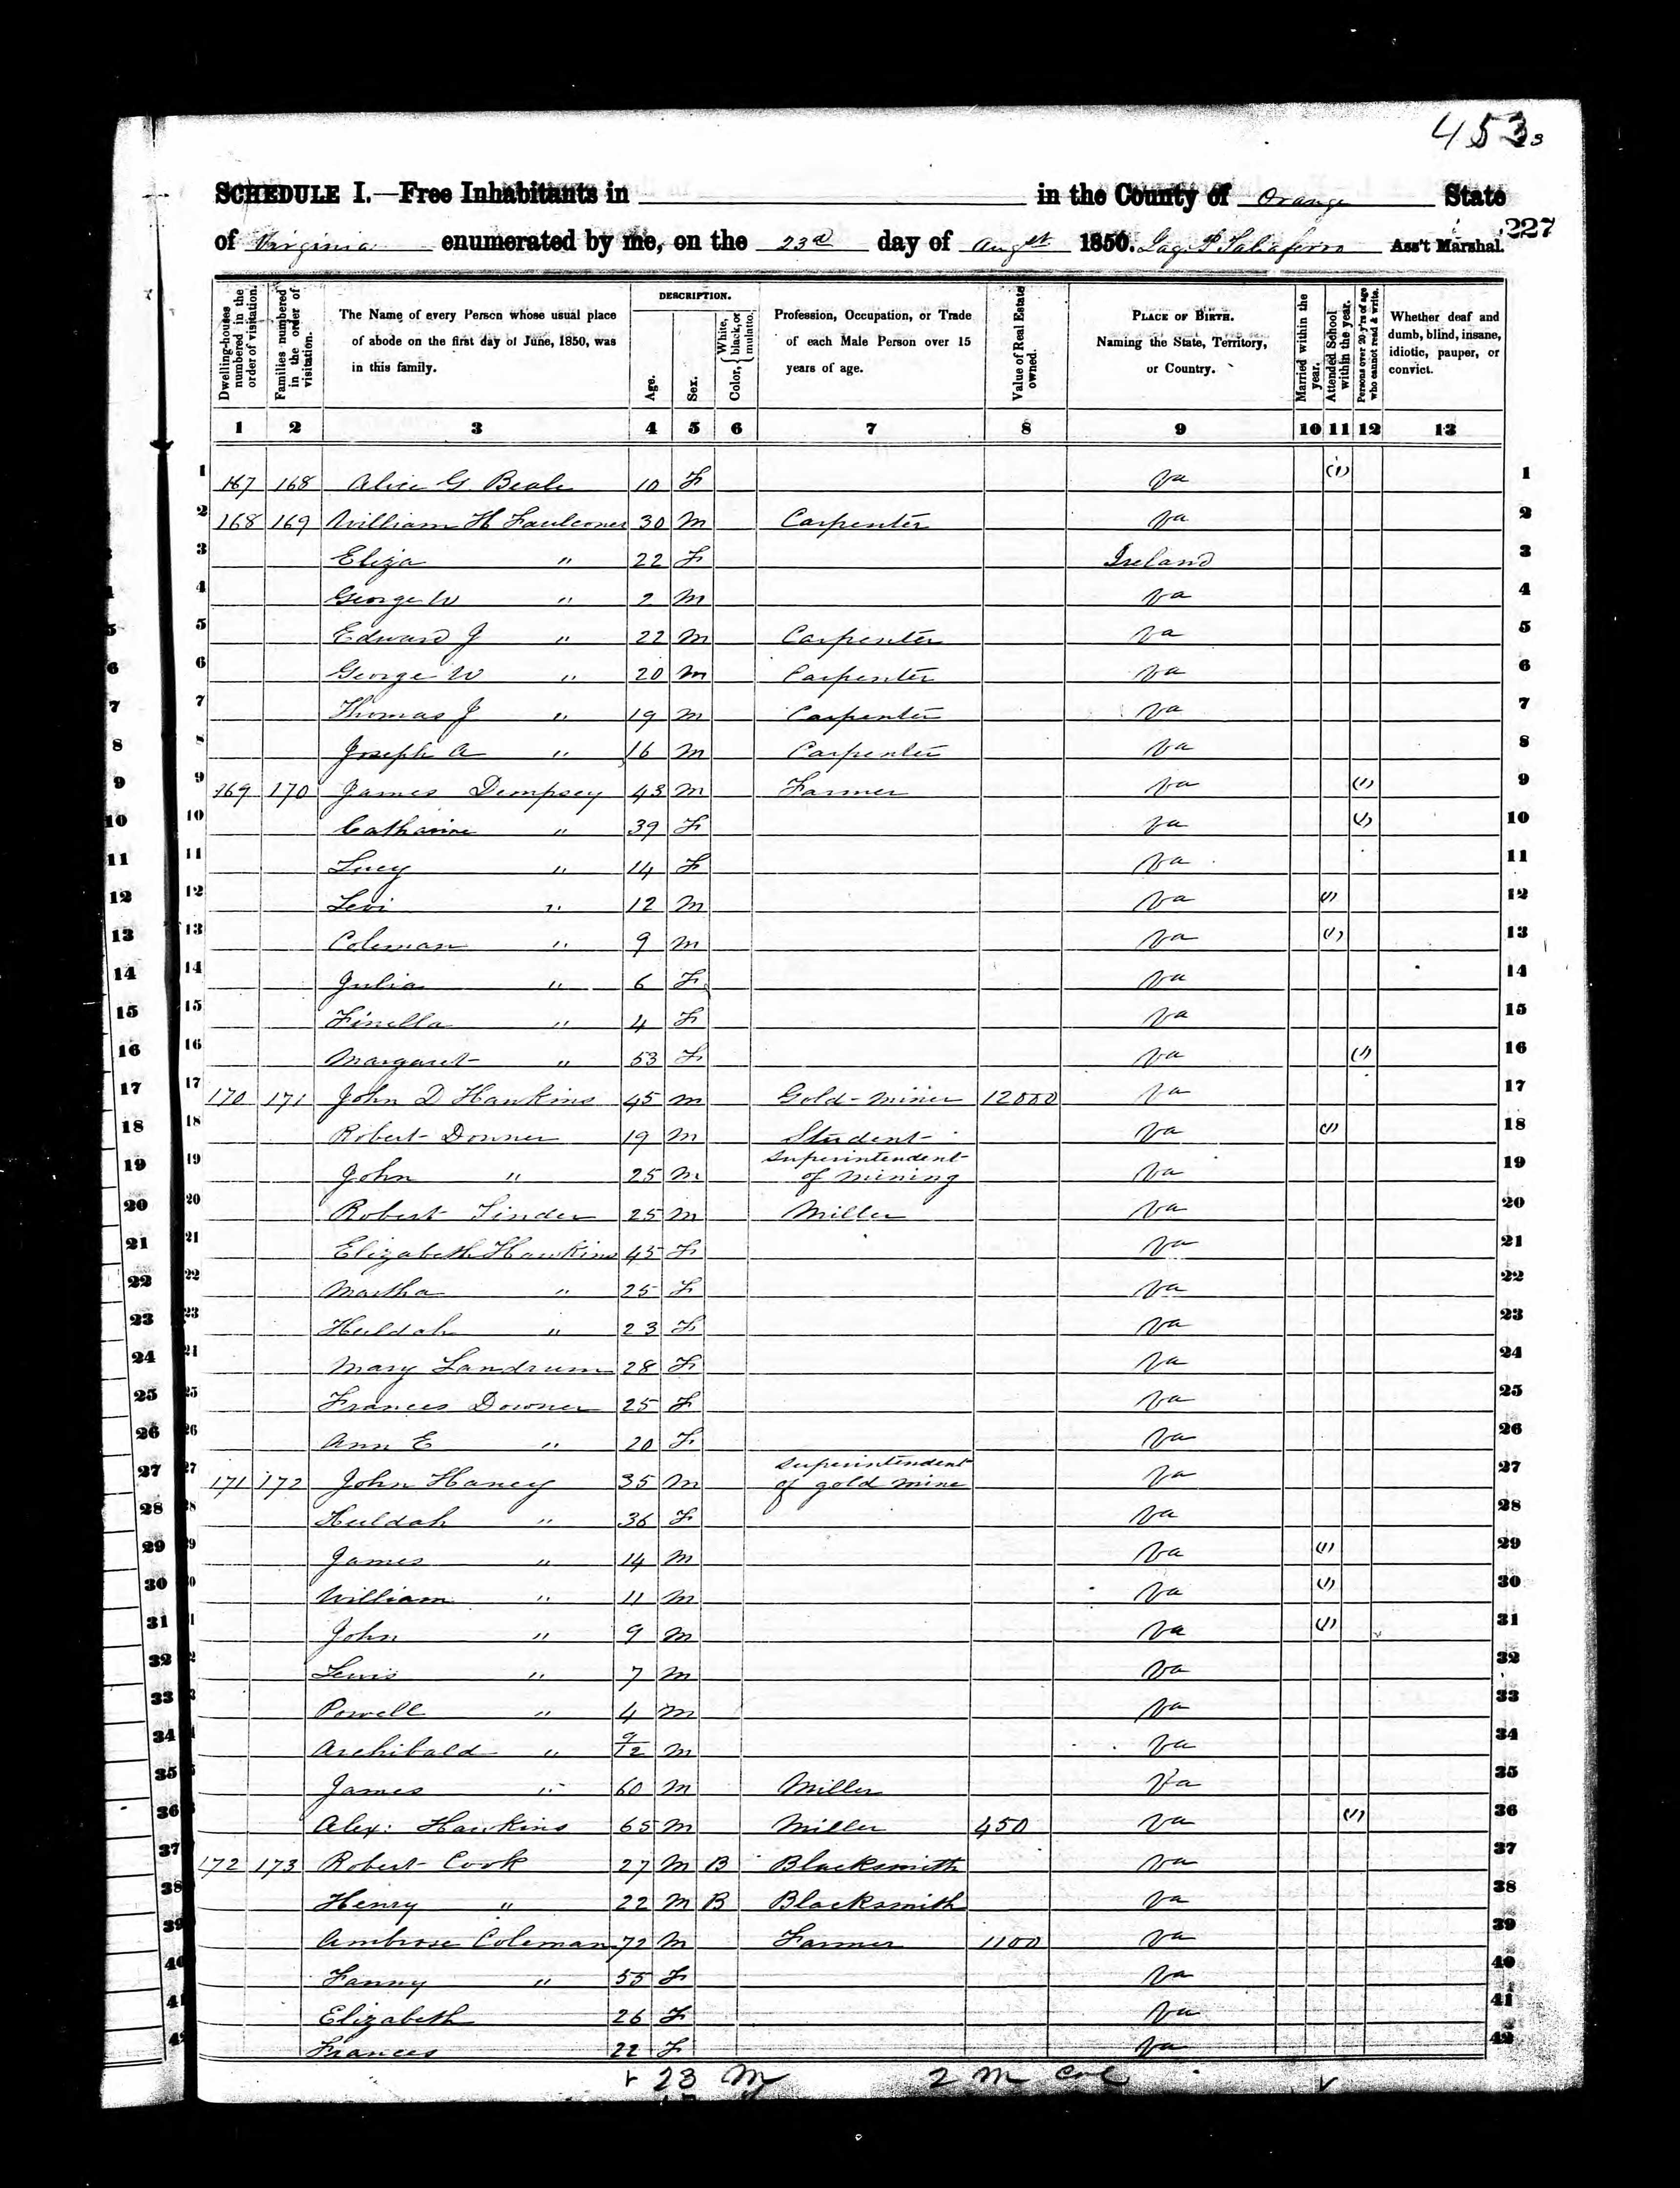 453
SCHEDULE I.—Free Inhabitants in in the County of Orange State
of Virginia enumerated by me, on the 23d day of Augst 1850. Ass't Marshal. 227
Dwelling-houses numbered in the order of visitation.
Families numbered in the order of visitation.
The Name of every Person whose usual place of abode on the first day of June, 1850, was in this family.
DESCRIPTION.
Age.
Sex.
Color, { White, black, or mulatto.
Profession, Occupation, or Trade of each Male Person over 15 years of age.
Value of Real Estate owned.
PLACE OF BIRTH. Naming the State, Territory, or Country.
Married within the year.
Attended School within the year.
Persons over 20 y'rs of age who cannot read & write.
Whether deaf and dumb, blind, insane, idiotic, pauper, or convict.
1 2 3 4 5 6 7 8 9 10 11 12 13
1 167 168 Alice G Beale 10 F Va (1) 1
2 168 169 William H Faulconer 30 M Carpenter Va 2
3 Eliza " 22 F Ireland 3
4 George W " 2 M Va 4
5 Edward J " 22 M Carpenter Va 5
6 George W " 20 M Carpenter Va 6
7 Thomas J " 19 M Carpenter Va 7
8 Joseph A " 16 M Carpenter Va 8
9 169 170 James Dempsey 43 M Farmer Va (1) 9
10 Catharine " 39 F Va (1) 10
11 Lucy " 14 F Va 11
12 Levi " 12 M Va (1) 12
13 Coleman " 9 M Va (1) 13
14 Julia " 6 F Va 14
15 Finella " 4 F Va 15
16 Margaret " 53 F Va (1) 16
17 170 171 John D Hawkins 45 M Gold-miner 12000 Va 17
18 Robert Downer 19 M Student Va (1) 18
19 John " 25 M Superintendent of mining Va 19
20 Robert Tinder 25 M Miller Va 20
21 Elizabeth Hawkins 45 F Va 21
22 Martha " 25 F Va 22
23 Huldah " 23 F Va 23
24 Mary Landrum 28 F Va 24
25 Frances Downer 25 F Va 25
26 Ann E " 20 F Va 26
27 171 172 John Haney 35 M Superintendent of gold mine Va 27
28 Huldah " 36 F Va 28
29 James " 14 M Va (1) 29
30 William " 11 M Va (1) 30
31 John " 9 M Va (1) 31
32 Lewis " 7 M Va 32
33 Powell " 4 M Va 33
34 Archibald " 9/12 M Va 34
35 James " 60 M Miller Va 35
36 Alex: Hawkins 65 M Miller 450 Va (1) 36
37 172 173 Robert Cook 27 M B Blacksmith Va 37
38 Henry " 22 M B Blacksmith Va 38
39 Ambrose Coleman 72 M Farmer 1100 Va 39
40 Fanny " 55 F Va 40
41 Elizabeth 26 F Va 41
42 Frances 22 F Va 42
23 M 2 M Col